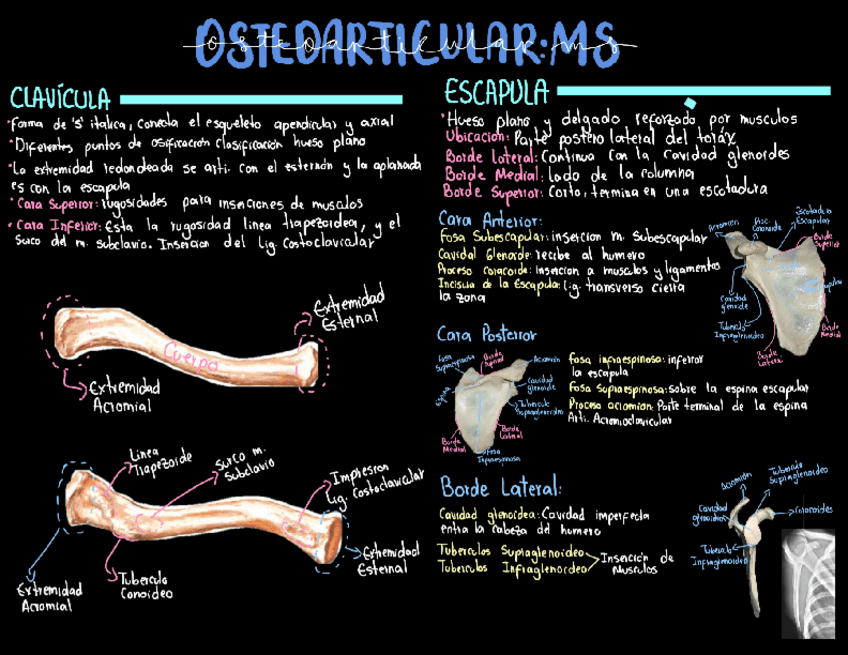 OSTEOARTICULAR:MS
osteoarticular:ms
CLAVÍCULA
*forma de 'S' italica, conecta el esqueleto apendicular y axial
*Diferentes puntos de osificación clasificación hueso plano
*La extremidad redondeada se arti. con el esternón y la aplanada
es con la escapula
*Cara Superior: rugosidades para inserciones de musculos
*Cara Inferior: Esta la rugosidad linea trapezoidea, y el
surco del m. subclavio. Insercion del Lig. Costoclavicular
Extremidad
Esternal
Cuerpo
Extremidad
Acromial
Linea
Trapezoide
Surco m.
Subclavio
Impresion
Lig. Costoclavicular
Extremidad
Esternal
Tuberculo
Conoideo
Extremidad
Acromial
ESCAPULA
*Hueso plano y delgado reforzado por musculos
Ubicacion: Parte postero lateral del torax
Borde Lateral: Continua con la cavidad glenoides
Borde Medial: Lado de la columna
Borde Superior: Corto, termina en una escotadura
Cara Anterior:
Fosa Subescapular: insercion m. Subescapular
Cavidad Glenoide: recibe al humero
Proceso coracoide: Insercion a musculos y ligamentos
Incisura de la Escapula: Lig. transverso cierra
la zona
Acromion
Proc.
Coronoide
Escotadura
Escapular
Borde
Superior
Cavidad
glenoide
Tuberculo
Infraglenoideo
Borde
Lateral
Borde
Medial
Cara Posterior
Fosa
Supraespinosa
Borde
Superior
Acromion
Espina
Cavidad
glenoide
Tuberculo
Supraglenoideo
Borde
Lateral
Borde
Medial
Fosa
Infraespinosa
Fosa infraespinosa: inferior
la escapula
Fosa Supraespinosa: sobre la espina escapular
Proceso acromion: Parte terminal de la espina
Arti. Acromioclavicular
Borde Lateral:
Cavidad glenoidea: Cavidad imperfecta
entra la cabeza del humero
Tuberculos Supraglenoideo
Tuberculos Infraglenoideo
Inserción de
Musculos
Acromion
Tuberculo
Supraglenoideo
Cavidad
glenoidea
Coronoides
Tuberculo
Infraglenoideo